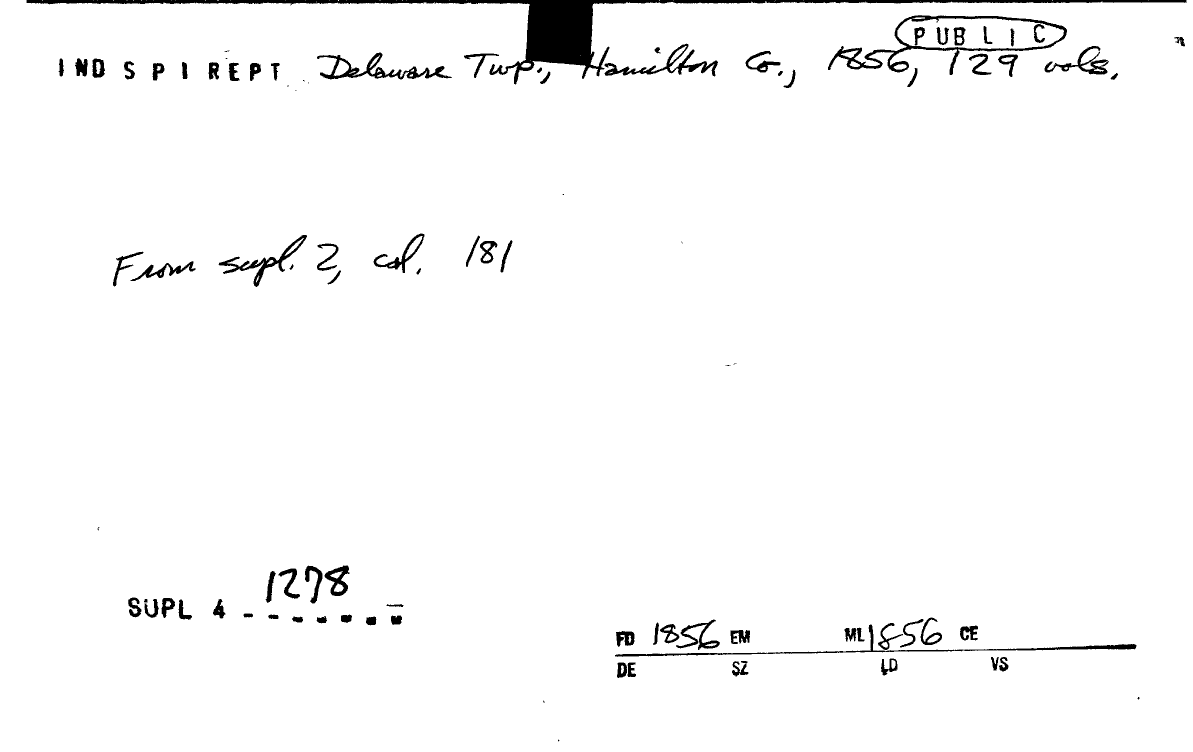 PUBLIC
INDSPIREPT Delaware Twp., Hamilton Co., 1856, 129 vols.
From supl. 2, col. 181
1278
SUPL 4 - - - - - - -
FD 1856 EM ML 1856 CE
DE SZ LD VS